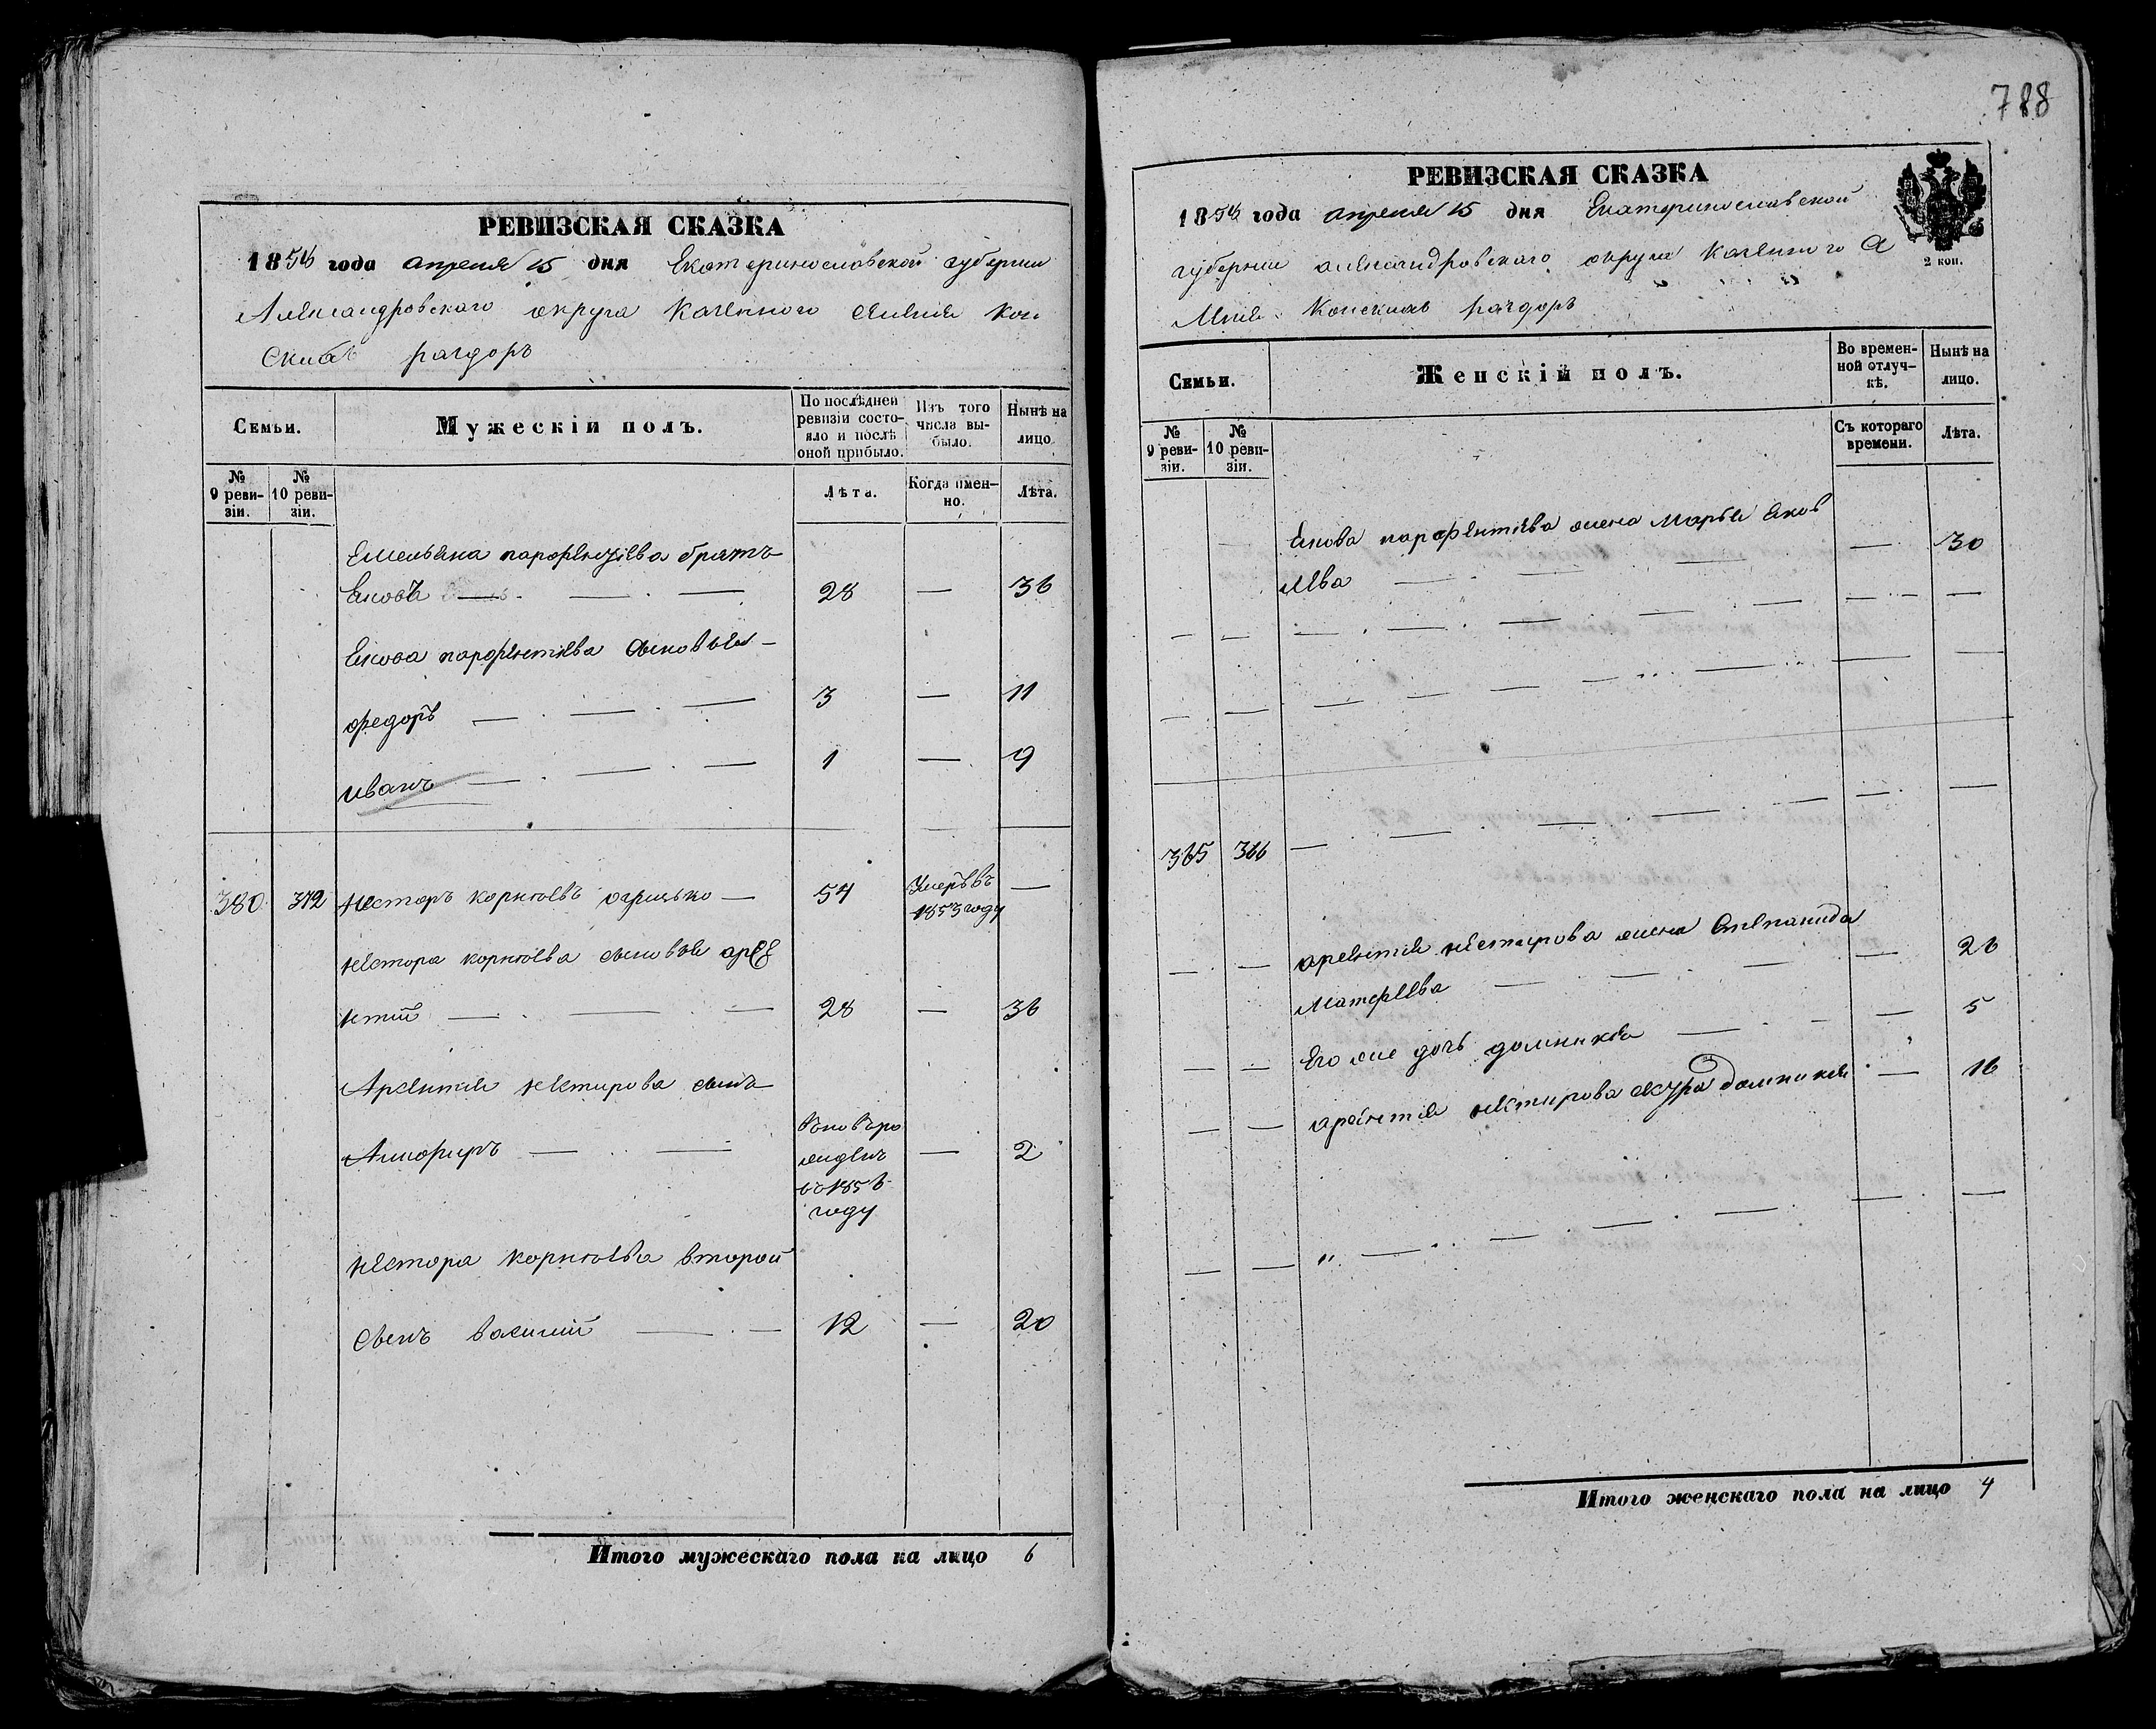 РЕВИЗСКАЯ СКАЗКА
1858 года апреля 15 дня Екатеринославской губернии
Александровскаго округа Казенного селения Кон
скихъ раздоръ
Семьи.
Мужескій полъ.
По послѣдней ревизіи состо-
яло и послѣ
оной прибыло.
Изъ того
числа вы-
было.
Нынѣ на
лицо.
№
9 реви-
зіи.
№
10 реви-
зіи.
Лѣта.
Когда имен-
но.
Лѣта.
Емельяна парфентіева братъ
Яковъ — 28 — 36
Якова парфентіева сыновья —
федоръ — 3 — 11
иванъ — 1 — 9
380 372 Нестеръ корнѣевъ — 54 Умеръ въ —
1853 году
нестора корнѣева сыновья арсе
нтій — 28 — 36
Арсентія нестирова сынъ
— — 2
вновьро
жденъ
въ 1856
году
нестора корнѣева второй
сынъ василій — 12 — 20
Итого мужескаго пола на лицо 6
788
РЕВИЗСКАЯ СКАЗКА
1858 года апреля 15 дня Екатеринославской
губернии александровскаго округа Казенного се
ления Конскихъ раздоръ
2 коп.
Семьи.
Женскій полъ.
Во времен-
ной отлуч-
кѣ.
Нынѣ на
лицо.
№
9 реви-
зіи.
№
10 реви-
зіи.
Съ котораго
времени.
Лѣта.
Якова парфентіева жена Марья яков
лева — — 30
365 366 — — —
арсентія нестирова жена Степанида
Матфеева — — 26
Его же дочь домникія — — 5
арсентія нестирова сестра домникія — 16
Итого женскаго пола на лицо 4